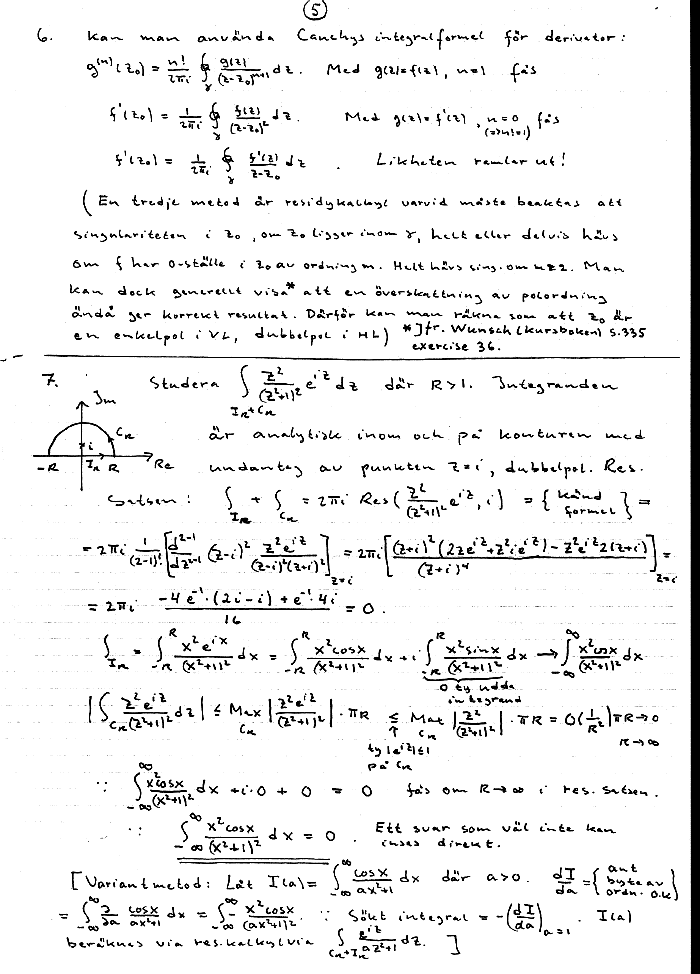 5
6. Kan man använda Cauchys integralformel för derivator:
g^(n)(z₀) = n!/(2πi) ∮_γ g(z)/(z-z₀)^(n+1) dz. Med g(z)=f(z), n=1 fås
f'(z₀) = 1/(2πi) ∮_γ f(z)/(z-z₀)² dz. Med g(z)=f'(z), n=0 fås
(=>n!=1)
f'(z₀) = 1/(2πi) ∮_γ f'(z)/(z-z₀) dz . Likheten ramlar ut!
(En tredje metod är residykalkyl varvid måste beaktas att
singulariteten i z₀, om z₀ ligger inom γ, helt eller delvis hävs
om f har 0-ställe i z₀ av ordning m. Helt hävs sing. om m≥2. Man
kan dock generellt visa* att en överskattning av polordning
ändå ger korrekt resultat. Därför kan man räkna som att z₀ är
en enkelpol i VL, dubbelpol i HL) *Jfr. Wunsch (kursboken) s.335
exercise 36.
7. Studera ∫_(I_R+C_R) z²/(z²+1)² e^(iz) dz där R>1. Integranden
Im
C_R
i
-R I_R R Re
är analytisk inom och på konturen med
undantag av punkten z=i, dubbelpol. Res.
satsen: ∫_(I_R) + ∫_(C_R) = 2πi Res(z²/(z²+1)² e^(iz), i) = {känd formel} =
= 2πi 1/(2-1)! [d^(2-1)/dz^(2-1) (z-i)² z²e^(iz)/((z-i)²(z+i)²)]_(z=i) = 2πi [((z+i)²(2ze^(iz)+z²ie^(iz)) - z²e^(iz)2(z+i))/(z+i)⁴]_(z=i) =
= 2πi (-4e⁻¹·(2i-i) + e⁻¹·4i)/16 = 0.
∫_(I_R) = ∫_(-R)^R x²e^(ix)/(x²+1)² dx = ∫_(-R)^R x²cosx/(x²+1)² dx + i ∫_(-R)^R x²sinx/(x²+1)² dx → ∫_(-∞)^∞ x²cosx/(x²+1)² dx
0 ty udda
integrand
|∫_(C_R) z²e^(iz)/(z²+1)² dz| ≤ Max_(C_R) |z²e^(iz)/(z²+1)²| · πR ≤ Max_(C_R) |z²/(z²+1)²| · πR = O(1/R²)πR → 0
↑ R→∞
ty |e^(iz)|≤1
på C_R
∵ ∫_(-∞)^∞ x²cosx/(x²+1)² dx + i·0 + 0 = 0 fås om R→∞ i res. satsen.
∵ ∫_(-∞)^∞ x²cosx/(x²+1)² dx = 0 . Ett svar som väl inte kan
inses direkt.
[Variantmetod: Låt I(a) = ∫_(-∞)^∞ cosx/(ax²+1) dx där a>0. dI/da = {ant byte av ordn. o.k}
= ∫_(-∞)^∞ ∂/∂a cosx/(ax²+1) dx = ∫_(-∞)^∞ - x²cosx/(ax²+1)² dx. ∵ Sökt integral = -(dI/da)_(a=1). I(a)
beräknas via res.kalkyl via ∫_(C_R+I_R) e^(iz)/(az²+1) dz. ]